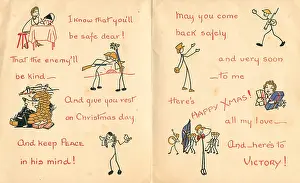 I know that you'll
be safe dear!
That the enemy'll
be kind —
And give you rest
on Christmas day
And keep PEACE
in his mind!
May you come
back safely
and very soon
to me
Here's
HAPPY XMAS!
all my love —
And — here's to
VICTORY!